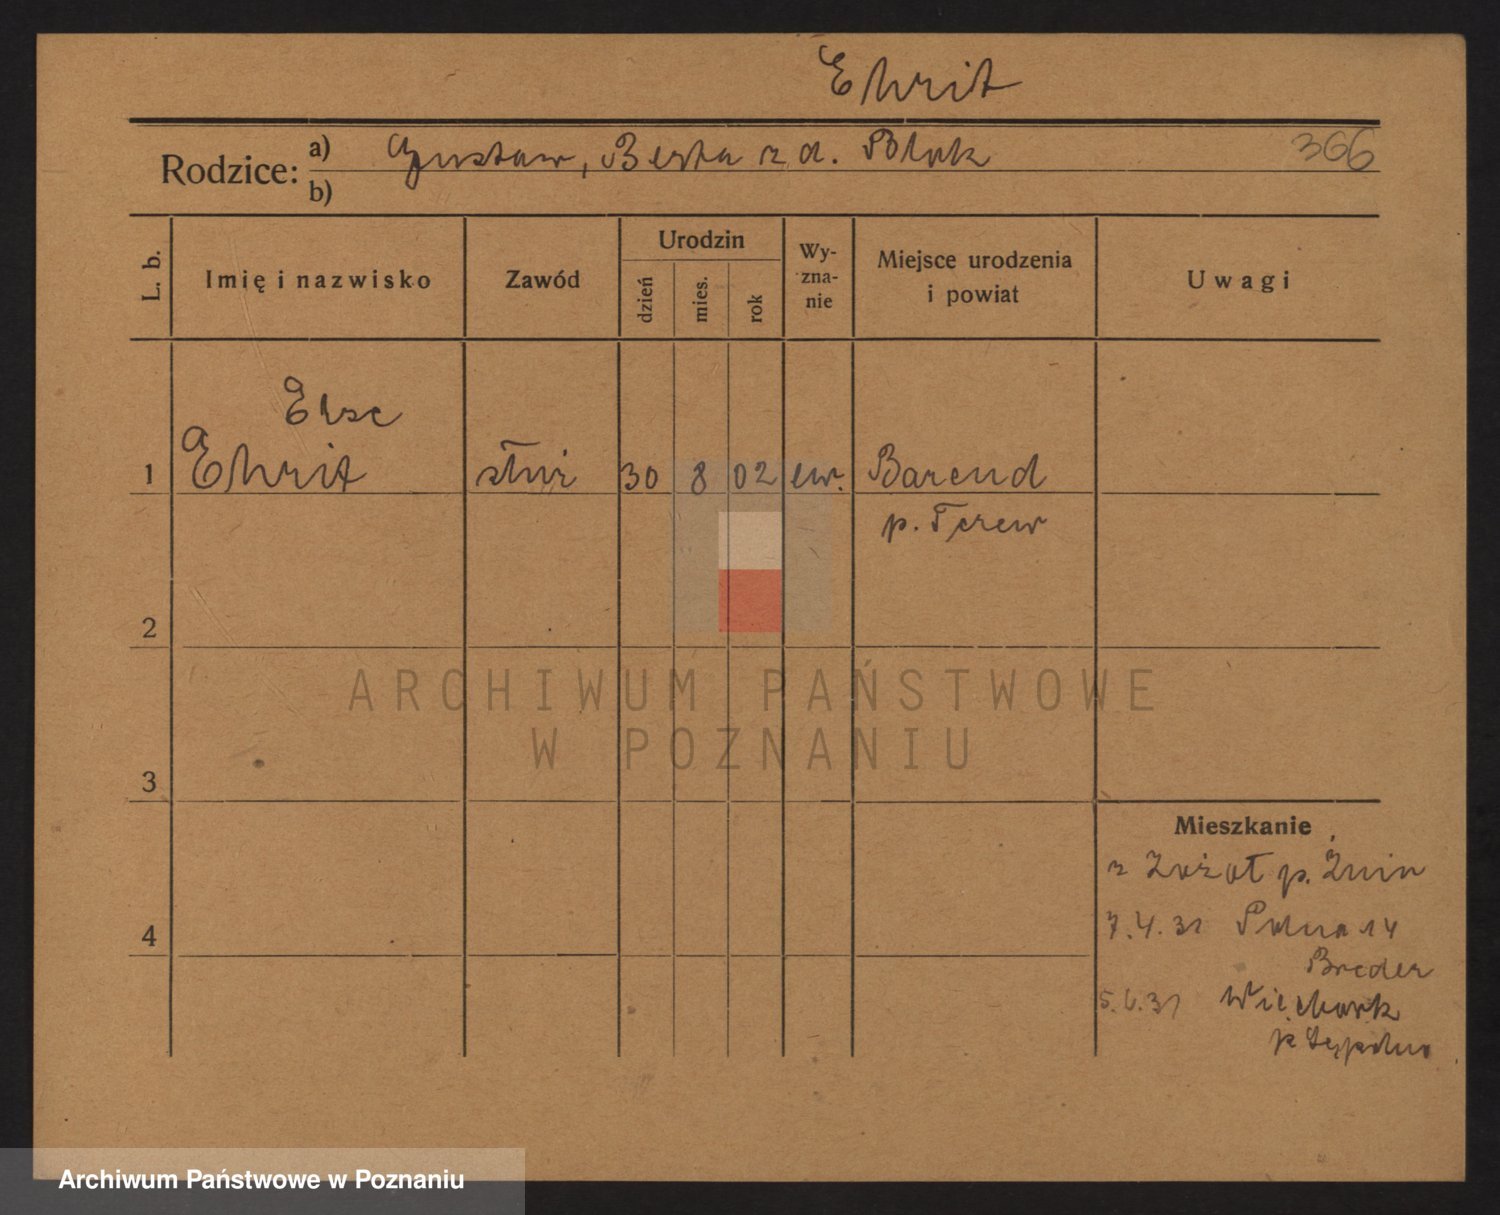 Ehrit
366
Rodzice: a) Gustaw, Berta z d. Blok
b)
L. b. Imię i nazwisko Zawód Urodzin dzień mies. rok Wy-zna-nie Miejsce urodzenia i powiat Uwagi
Else
1 Ehrit służ 30 8 02 ew. Barend
p. Tczew
2
ARCHIWUM PAŃSTWOWE
W POZNANIU
3
Mieszkanie
z p. Żnin
4 7.4.31 Polna 14
Breder
5.6.31 Więcbork
p Sępolno
Archiwum Państwowe w Poznaniu